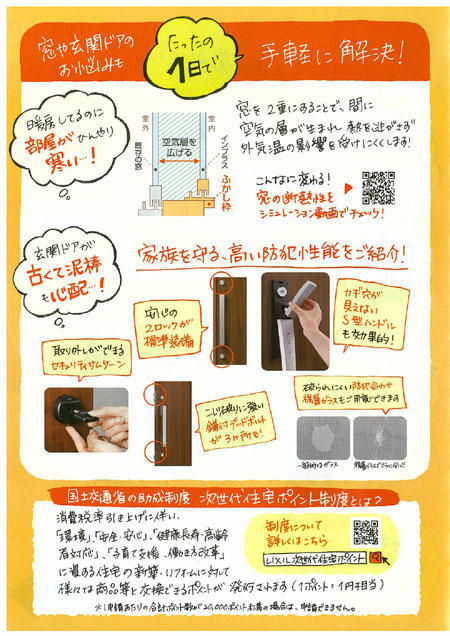 窓や玄関ドアの
お悩みも
たったの
1日で
手軽に解決!
暖房してるのに
部屋が ひんやり
寒い…!
室外
室内
空気層を
広げる
既存の窓
インプラス
ふかし枠
窓を2重にすることで、間に
空気の層が生まれ 熱を逃がさず
外気温の影響を受けにくくします!
こんなに変わる!
窓の断熱性を
シミュレーション動画でチェック!
玄関ドアが
古くて泥棒
も心配…!
家族を守る、高い防犯性能をご紹介!
安心の
2ロックが
標準装備
カギ穴が
見えない
S型ハンドル
も効果的!
取り外しができる
セキュリティサムターン
こじ破りに強い
鎌付デッドボルト
が3ヶ所も!
破られにくい防犯合わせ
複層ガラスもご用意できます
一般的なガラス
国土交通省の助成制度 次世代住宅ポイント制度とは?
消費税率引き上げに伴い、
「環境」、「安全・安心」、「健康長寿・高齢
者対応」、「子育て支援、働き方改革」
に資する住宅の新築・リフォームに対して
様々な商品等と交換できるポイントが 発行されます(1ポイント=1円相当)
制度について
詳しくはこちら
LIXIL次世代住宅ポイント
※1申請あたりの合計ポイント数が20,000ポイント未満の場合は、申請できません。